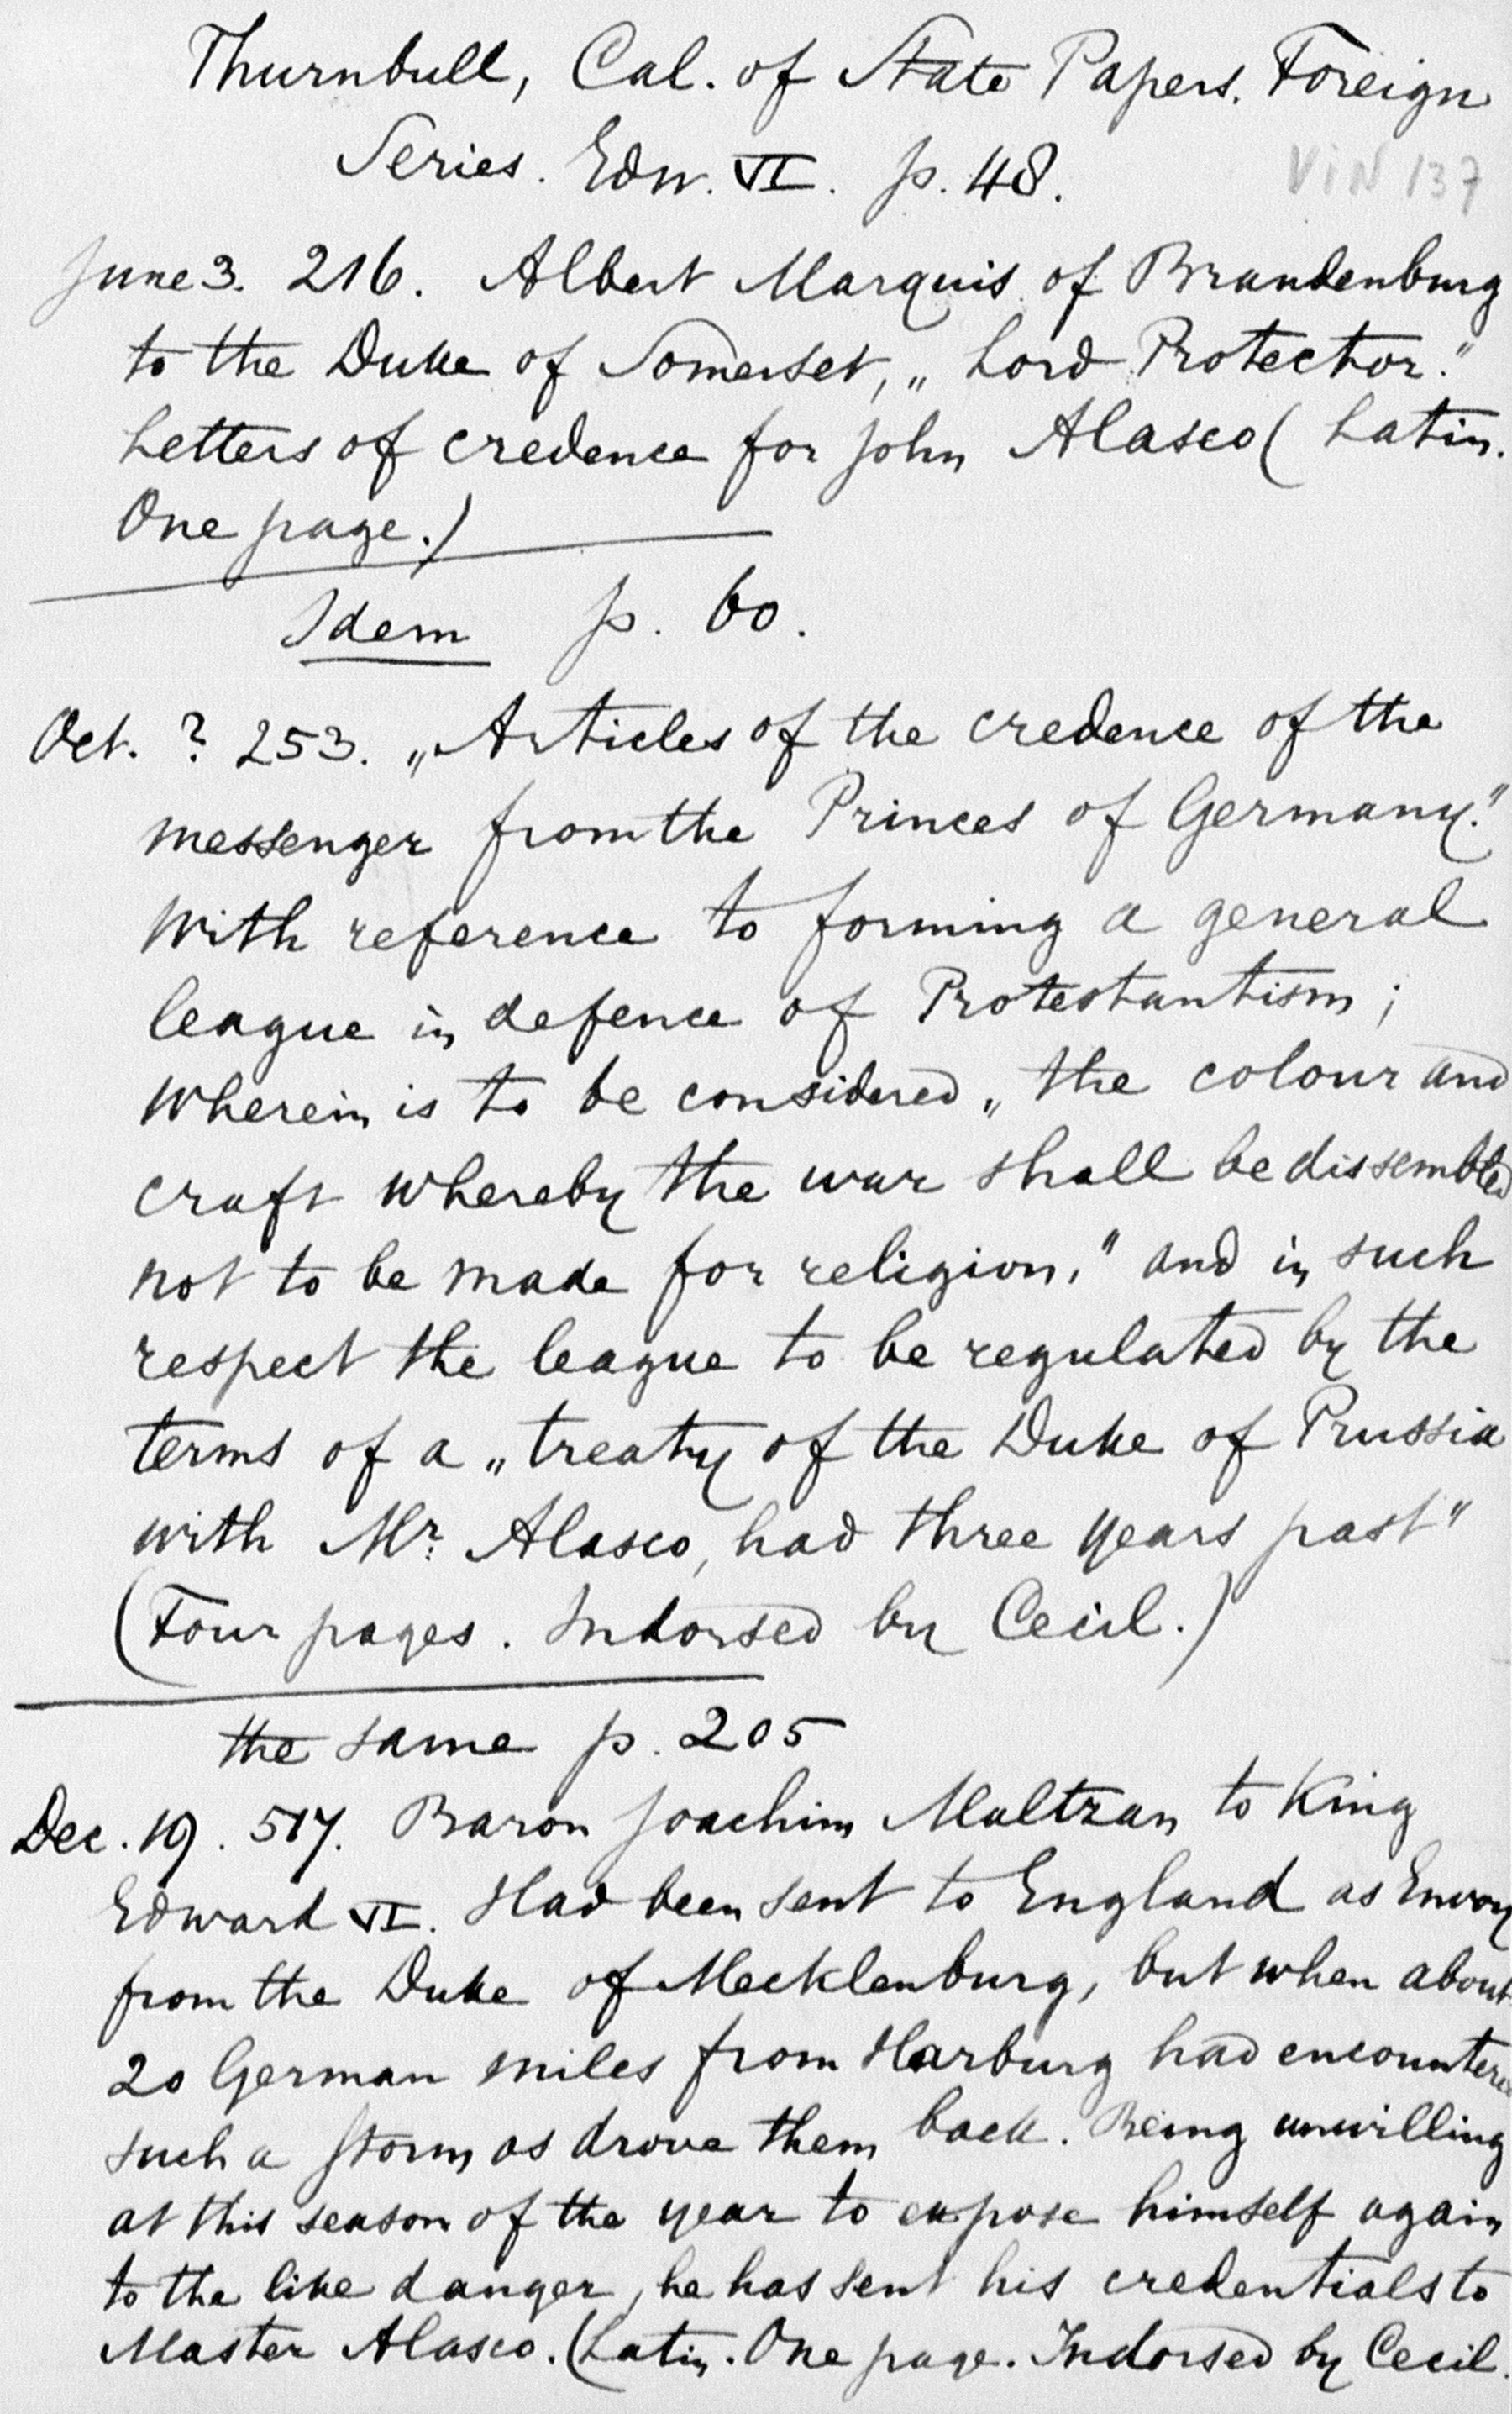 Thurnbull, Cal. of State Papers. Foreign
Series. Edw. VI. p. 48.
VIN 137
June 3. 216. Albert Marquis of Brandenburg
to the Duke of Somerset, „Lord Protector."
Letters of credence for John Alasco (Latin.
One page.)
Idem p. 60.
Oct. ? 253. „Articles of the credence of the
messenger from the Princes of Germany."
With reference to forming a general
league in defence of Protestantism;
wherein is to be considered „the colour and
craft whereby the war shall be dissembled
not to be made for religion," and in such
respect the league to be regulated by the
terms of a „treaty of the Duke of Prussia
with Mr. Alasco, had three years past"
(Four pages. Indorsed by Cecil.)
the same p. 205
Dec. 19. 517. Baron Joachim Maltzan to King
Edward VI. Had been sent to England as Envoy
from the Duke of Mecklenburg, but when about
20 German miles from Harburg had encountered
such a storm as drove them back. Being unwilling
at this season of the year to expose himself again
to the like danger, he has sent his credentials to
Master Alasco. (Latin. One page. Indorsed by Cecil.